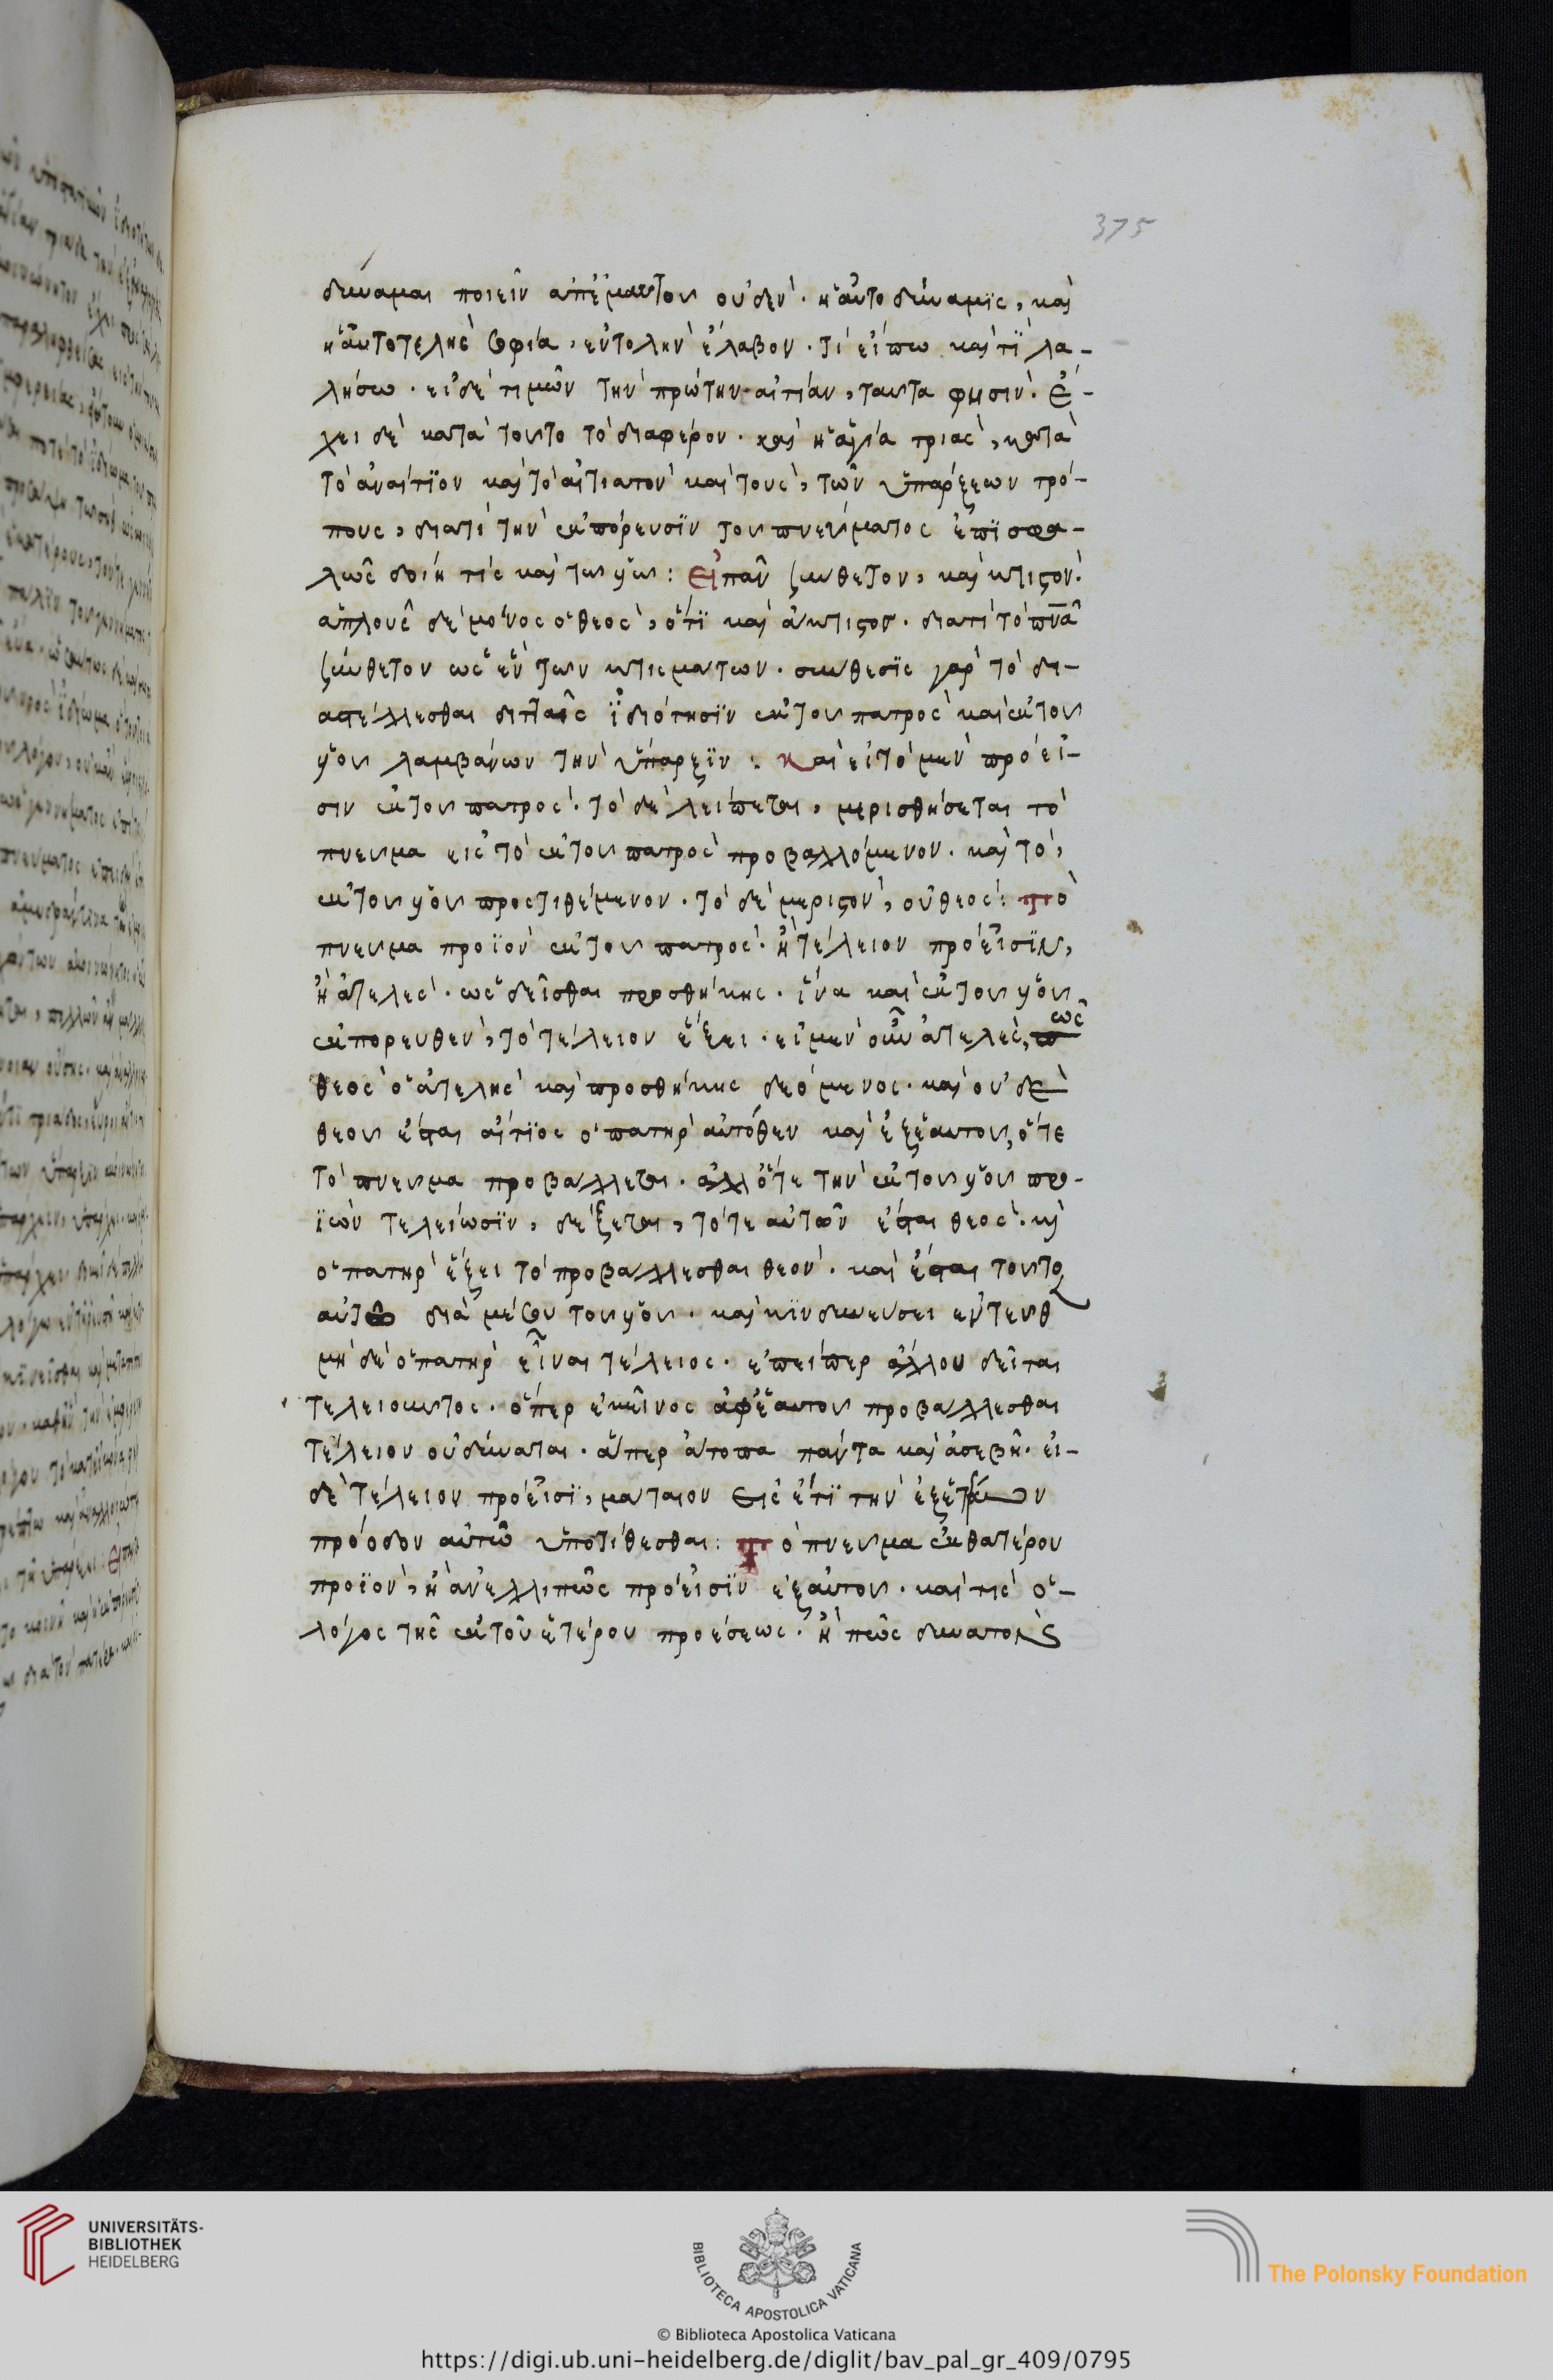 375
δύναμαι ποιεῖν ἀπ' ἐμαυτοῦ οὐδέν· ἡ αὐτοδύναμις, καὶ
ἡ αὐτοτελὴς σοφία, ἐντολὴν ἔλαβον· τί εἴπω καὶ τί λα-
λήσω· εἰ δὲ τιμῶν τὴν πρώτην αἰτίαν, ταῦτα φησίν· ἔ-
χει δὲ κατὰ τοῦτο τὸ διαφέρον· καὶ ἡ ἁγία τριάς, κατὰ
τὸ ἀναίτιον καὶ τὸ αἰτιατὸν καὶ τοὺς, τῶν ὑπάρξεων τρό-
πους, διατί τὴν ἐκπόρευσιν τοῦ πνεύματος ἐπισφα-
λῶς δοίη τίς καὶ τῷ υἱῷ: Εἰ πᾶν ξύνθετον, καὶ κτιστόν·
ἁπλοῦς δὲ μόνος ὁ θεός, ὅτι καὶ ἄκτιστος· διατί τὸ πνᾶ
ξύνθετον ὡς ἓν τῶν κτισμάτων· σύνθεσις γὰρ τὸ δι-
αστέλλεσθαι διτταῖς ἰδιότησιν ἐκ τοῦ πατρὸς καὶ ἐκ τοῦ
υἱοῦ λαμβάνων τὴν ὕπαρξιν: Καὶ εἰ τὸ μὲν πρόει-
σιν ἐκ τοῦ πατρός· τὸ δὲ λείπεται, μερισθήσεται τὸ
πνεῦμα εἰς τὸ ἐκ τοῦ πατρὸς προβαλλόμενον· καὶ τὸ,
ἐκ τοῦ υἱοῦ προστιθέμενον· τὸ δὲ μεριστόν, οὐ θεός: Τὸ
πνεῦμα προϊὸν ἐκ τοῦ πατρός· ἢ τέλειον πρόεισιν,
ἢ ἀτελές· ὡς δεῖσθαι προσθήκης· ἵνα καὶ ἐκ τοῦ υἱοῦ
ἐκπορευθὲν, τὸ τέλειον ἕξει· εἰ μὲν οὖν ἀτελές, πῶς
θεὸς ὁ ἀτελὴς καὶ προσθήκης δεόμενος· καὶ οὐδὲ
θεοῦ ἔσται αἴτιος ὁ πατὴρ αὐτόθεν καὶ ἐξ ἑαυτοῦ, ὅτε
τὸ πνεῦμα προβάλλεται· ἀλλ' ὅτε τὴν ἐκ τοῦ υἱοῦ προ-
ϊὼν τελείωσιν, δέξεται, τότε αὐτῶν ἔσται θεός· καὶ
ὁ πατὴρ ἕξει τὸ προβάλλεσθαι θεόν· καὶ ἔσται τοῦτο
αὐτῷ διὰ μέσου τοῦ υἱοῦ· καὶ κινδυνεύσει ἐντεῦθ
μὴ δὲ ὁ πατὴρ εἶναι τέλειος· ἐπείπερ ἄλλου δεῖται
τελειοῦντος· ὅπερ ἐκεῖνος ἀφ' ἑαυτοῦ προβάλλεσθαι
τέλειον οὐ δύναται· ἅπερ ἄτοπα πάντα καὶ ἀσεβῆ· εἰ-
δὲ τέλειον πρόεισι, μάταιον εἰς ἔτι τὴν ἐξ ἑτέρου
πρόοδον αὐτῷ ὑποτίθεσθαι: Τὸ πνεῦμα ἐκ θατέρου
προϊόν, ἢ ἀνελλιπῶς πρόεισιν ἐξ αὐτοῦ· καὶ τίς ὁ-
λόγος τῆς ἐκ τοῦ ἑτέρου προέσεως· ἢ πῶς δυνατὸν
UNIVERSITÄTS-
BIBLIOTHEK
HEIDELBERG
BIBLIOTECA APOSTOLICA VATICANA
The Polonsky Foundation
© Biblioteca Apostolica Vaticana
https://digi.ub.uni-heidelberg.de/diglit/bav_pal_gr_409/0795